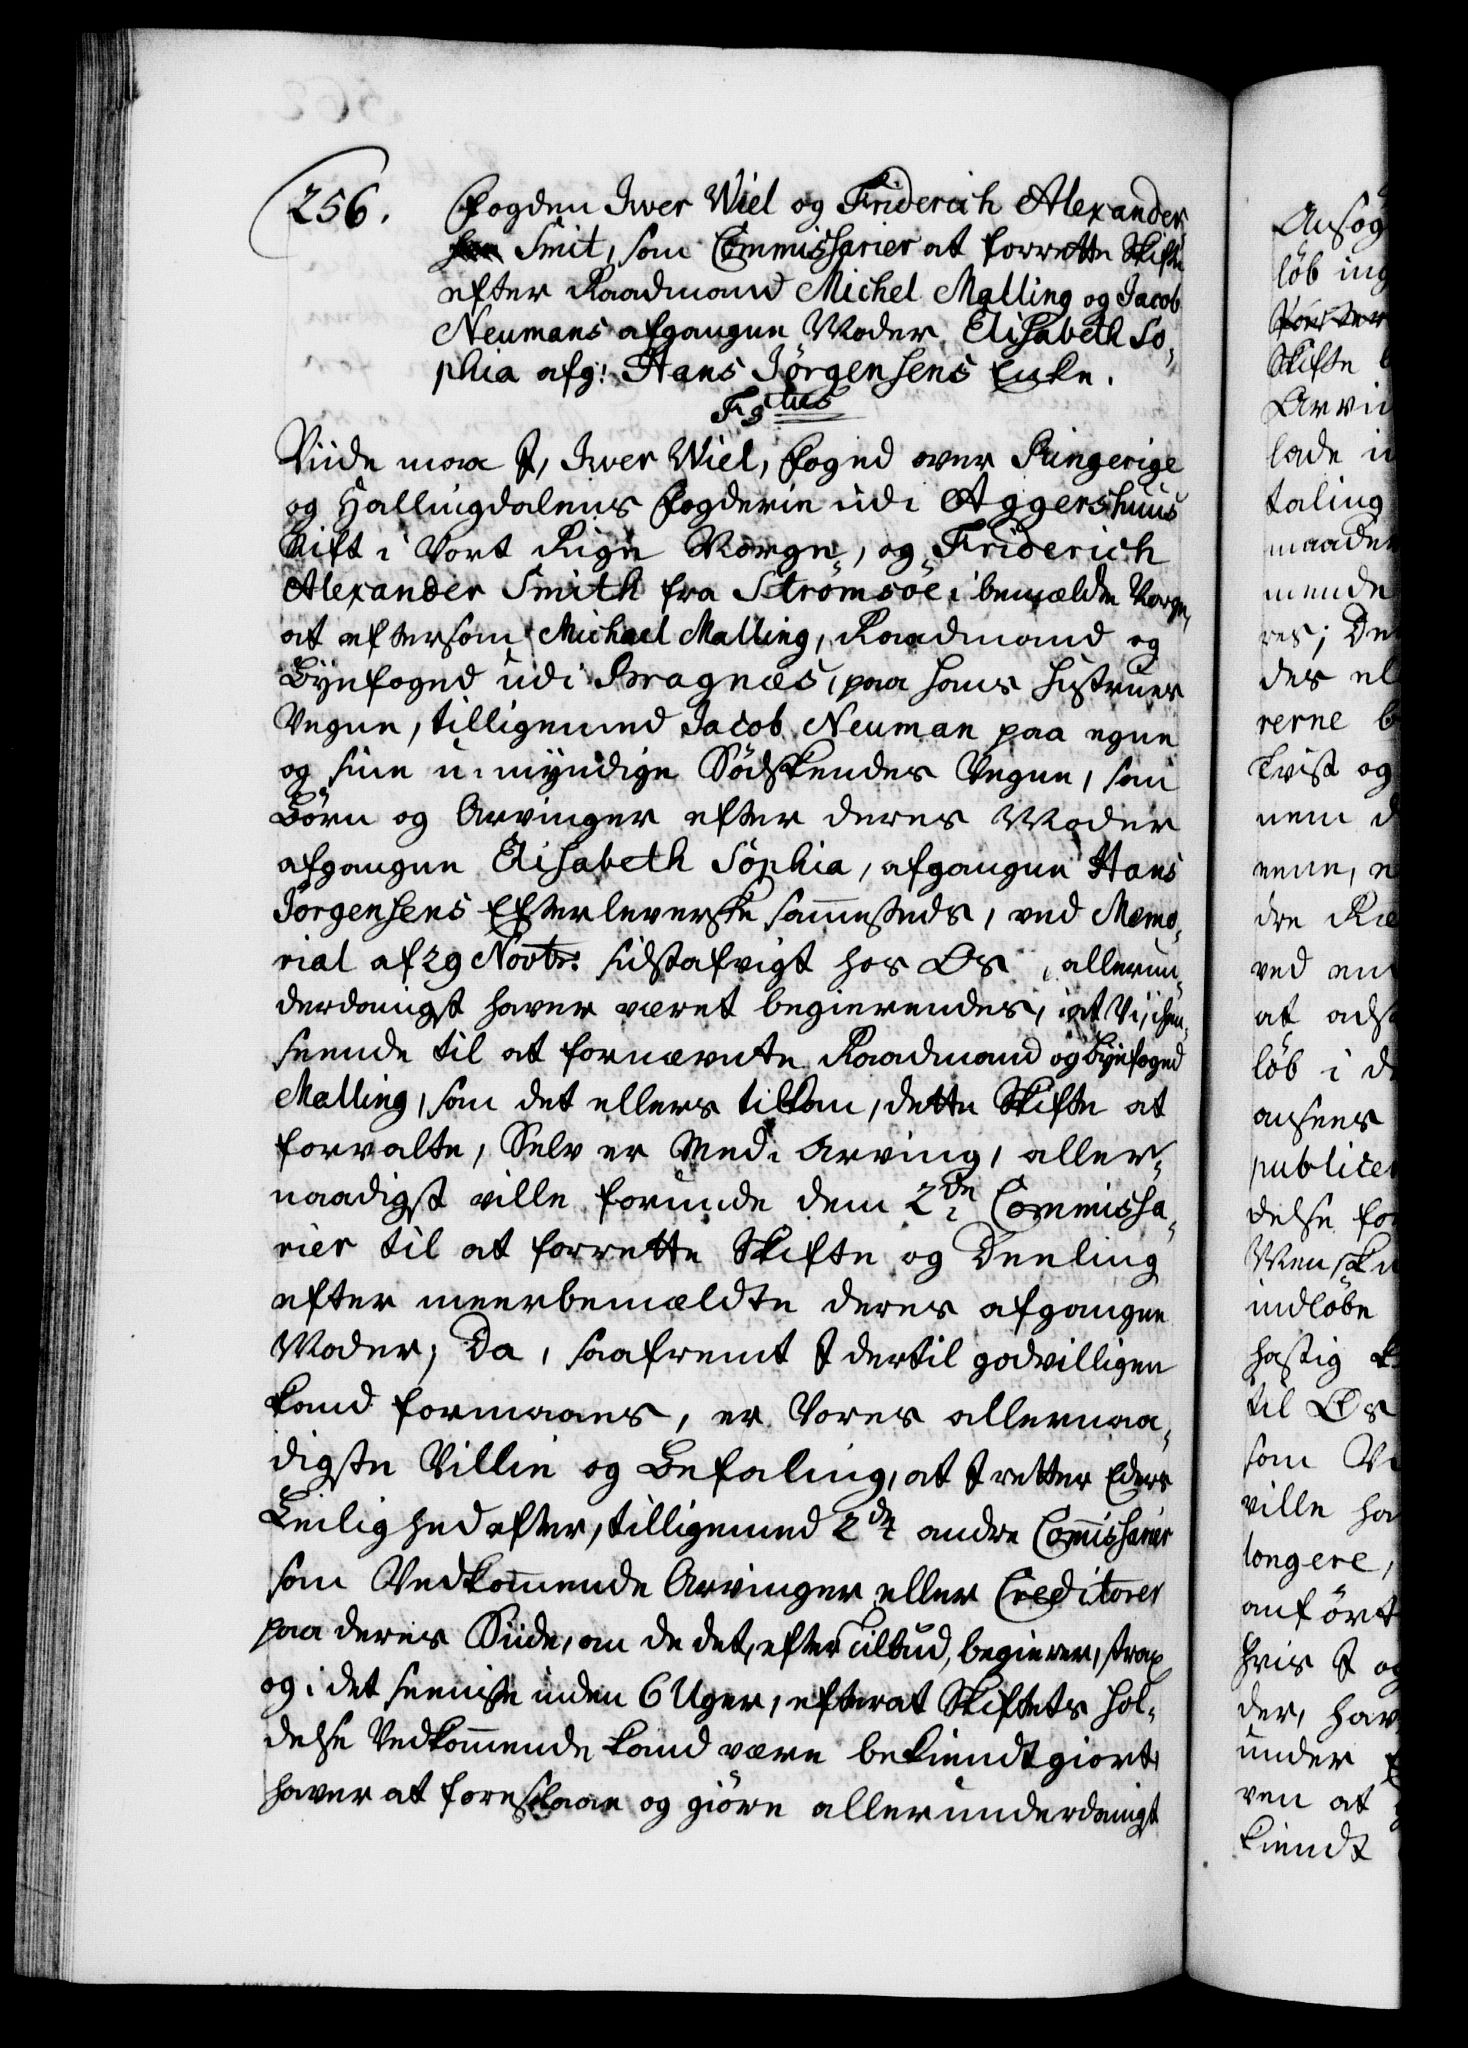 256.
Fogden Iver Wiel og Friderich Alexander
Smit, som Commissarier at forrette Skifte
efter Raadmand Michel Malling og Jacob
Neumans afgangne Moder Elisabeth So-
phia afg: Hans Jörgensens Enke.
F 5tus
Viide maa I, Iver Wiel, Foged over Ringerige
og Hallingdalens Fogderie udi Aggershuus
Stift i Vort Rige Norge, og Friderich
Alexander Smith fra Strömsöe i bemældte Norge,
at eftersom Michael Malling, Raadmand og
Byefoged udi Bragnæs, paa hans Hustrues
Vegne, tilligemed Jacob Neuman paa egne
og sine u-myndige Södskendes Vegne, som
Börn og Arvinger efter deres Moder
afgangne Elisabeth Sophia, afgangne Hans
Jörgensens Efterleverske sammesteds, ved Memo-
rial af 29 Novbr: sidstafvigt hos Os, allerun-
derdanigst haver været begierendes, at Vi, i hen-
seende til at fornævnte Raadmand og Byefoged
Malling, som det ellers tilkom, dette Skifte at
forvalte, Selv er Med-Arving, aller-
naadigst ville forunde dem 2de Commissa-
rier til at forrette Skifte og Deeling
efter meerbemældte deres afgangne
Moder; Da, saafremt I dertil godvilligen
kand formaaes, er Vores allernaa-
digste Villie og Befaling, at I retter Eders
Leilighed efter, tilligemed 2de andre Commissarier
som Vedkommende Arvinger eller Creditorer
paa deres Siide, om de det, efter Tilbud, begierer, strax
og i det seeniste inden 6 Uger, efterat Skiftets Hol-
delse Vedkommende kand være bekiendtgiort
haver at foreslaae og giöre allerunderdanigst
Ansög
löb ing
Skifte
Arvi
lade i
taling
maade
mende
res; De
des el
rerne b
Tvist og
nem d
eene, e
dre Ræ
ved en
at ads
löb i d
ansees
publicer
delse for
indlöbe
hastig
til Os
som Vi
ville ha
longere,
anfört
hvis I og
der, hav
under
ven at
kiendt